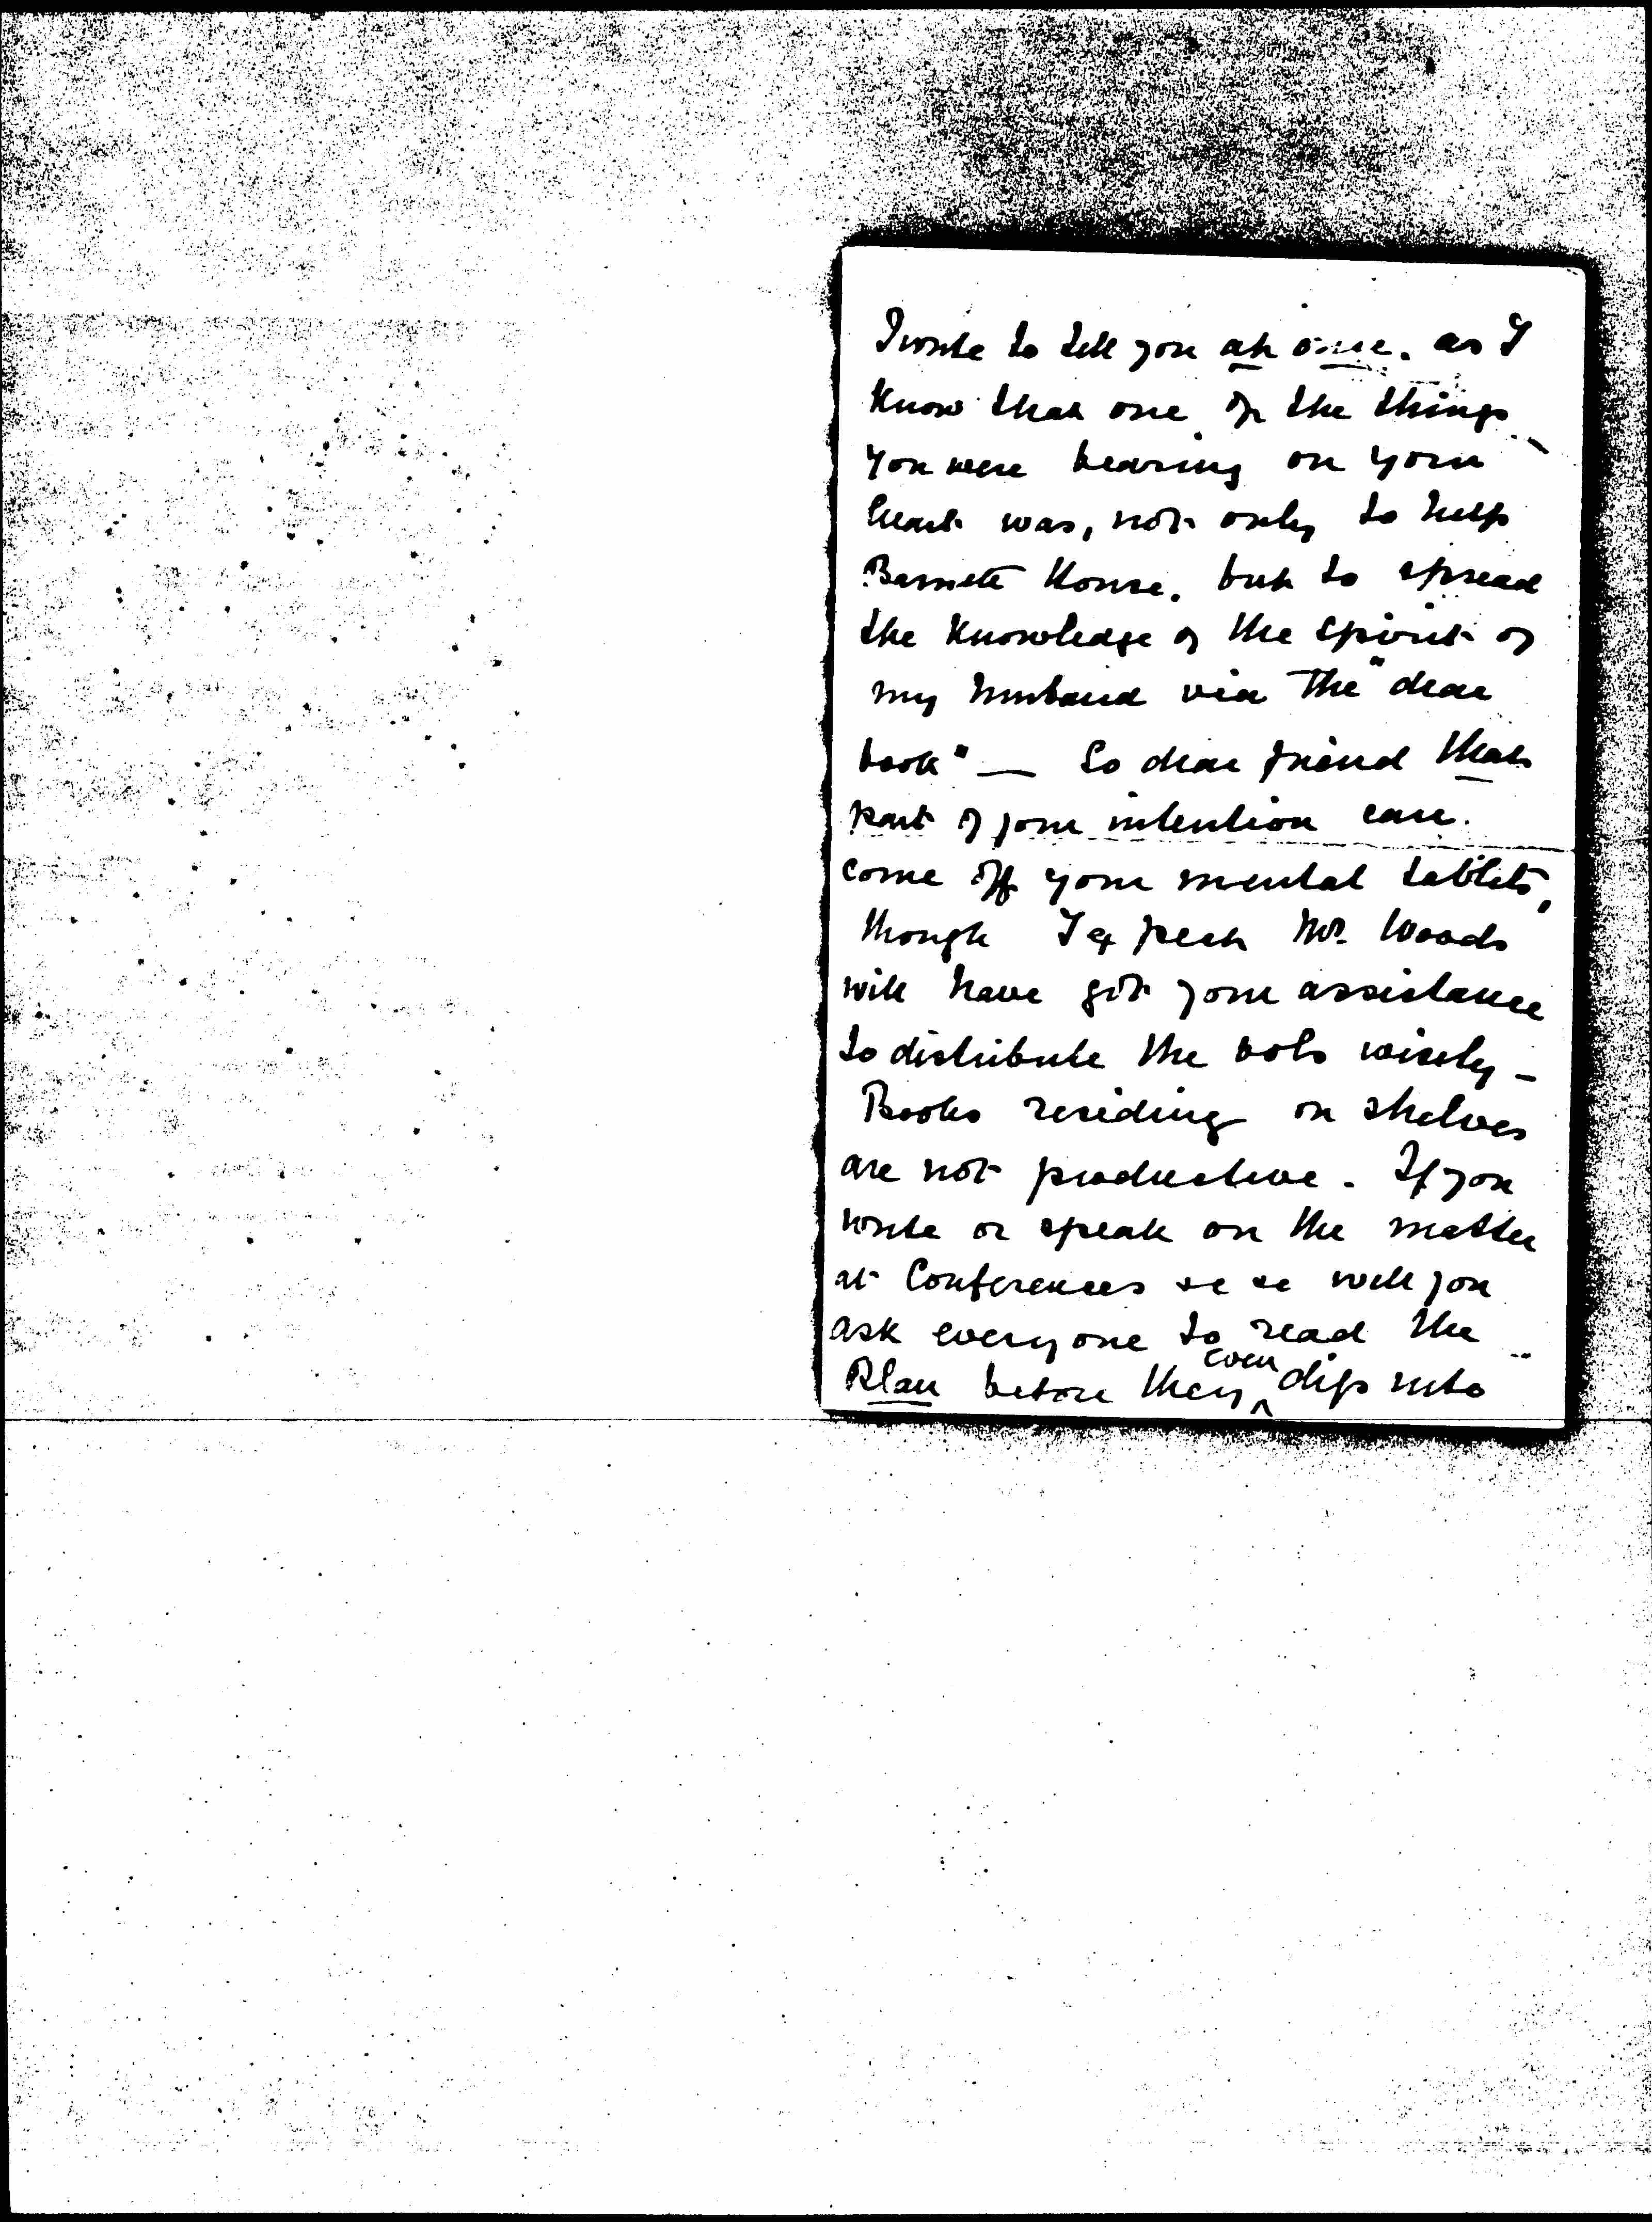 I write to tell you at once. as I
know that one of the things
you were bearing on your
heart was, not only to help
Barnett House. but to spread
the knowledge of the spirit of
my husband via The "dear
book" — So dear friend that
part of your intention can.
come off your mental tablets,
though I expect Mr. Woods
will have got your assistance
to distribute the vols wisely –
Books residing on shelves
are not productive. If you
write or speak on the matter
at Conferences &c &c will you
ask everyone to read the
Plan before they even dip into